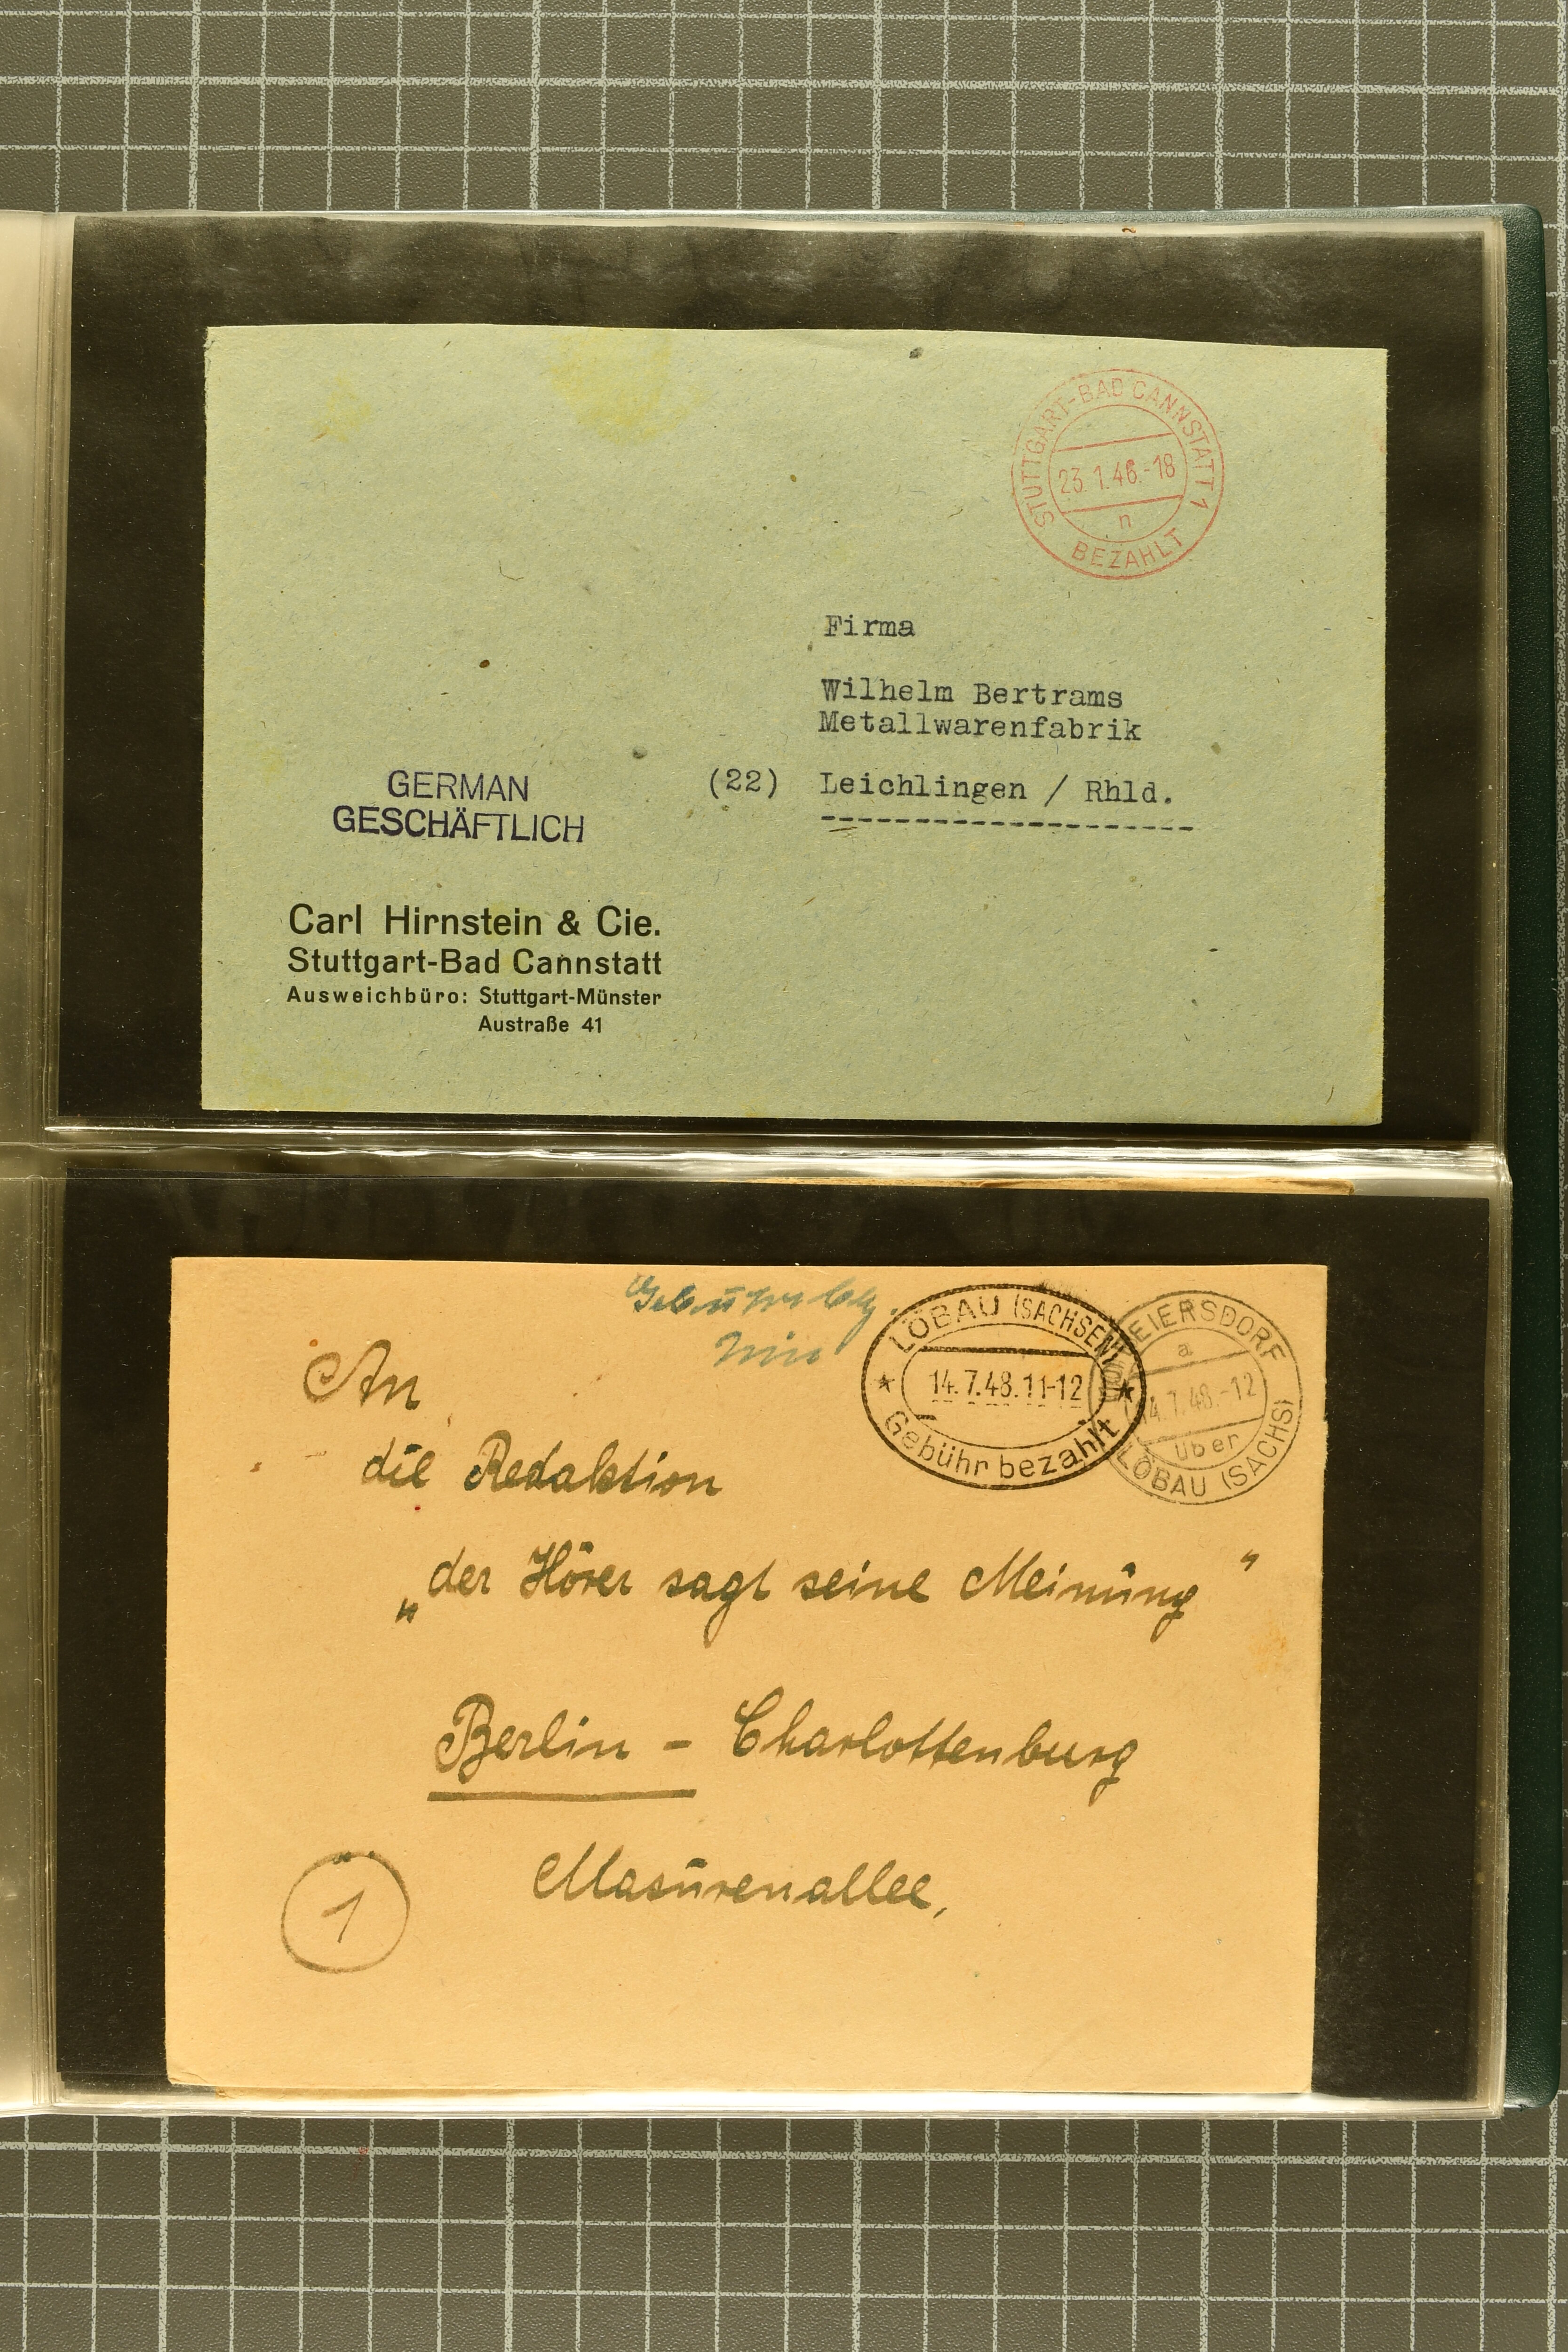 STUTTGART-BAD CANNSTATT 1
23.1.46.-18
n
BEZAHLT
Firma
Wilhelm Bertrams
Metallwarenfabrik
(22) Leichlingen / Rhld.
GERMAN
GESCHÄFTLICH
Carl Hirnstein & Cie.
Stuttgart-Bad Cannstatt
Ausweichbüro: Stuttgart-Münster
Austraße 41
Gebühr bez.
LÖBAU (SACHSEN)
14.7.48.11-12
Gebühr bezahlt
EIERSDORF
a
14.7.48.-12
über
LÖBAU (SACHS)
An
die Redaktion
„der Hörer sagt seine Meinung"
Berlin - Charlottenburg
Masurenallee,
1